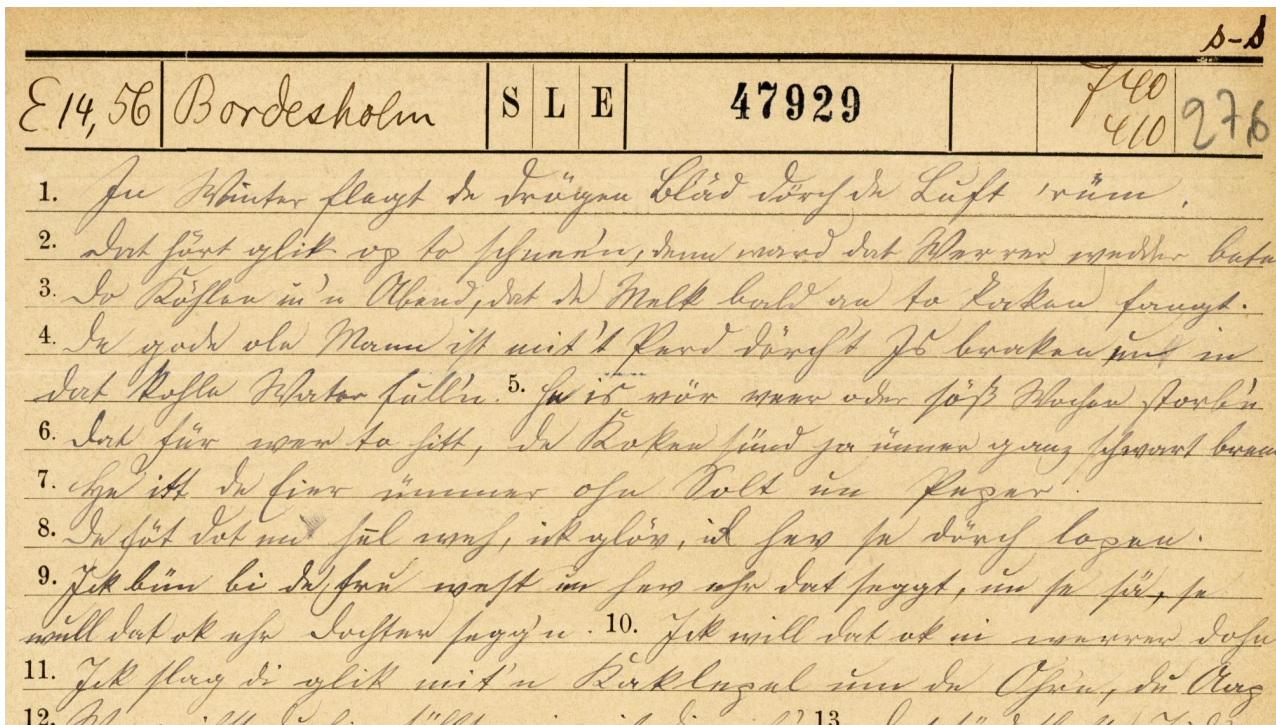 s-s
E 14, 56 Bordesholm S L E 47929 740 410 27,6
1. In Winter flegt de drögen Bläd dörch de Luft 'rüm.
2. Dat hört glik op to schneen, denn ward dat Werrer wedder
3. Do Köhlen in'n Abend, dat de Melk bald an to kaken fangt.
4. De gode ole Mann ist mit't Perd dörch't Is braken un in
dat kohle Water fulln. 5. He is vör veer oder söß Wochen storb'n
6. Dat Für wer to hitt, de Koken sünd ja ünner ganz schwart
7. He itt de Eier ümmer ohn Solt un Peper.
8. De Föt dot mi weh, ick glöv, ick hev se dörch lopen.
9. Ick bün bi de Fru west un hev ehr dat seggt, un se sä, se
wull dat ok ehr Dochter segg'n. 10. Ick will dat ok ni werrer dohn
11. Ick slag di glik mit'n Kaklepel um de Ohr'n, du Aap
12. 13.